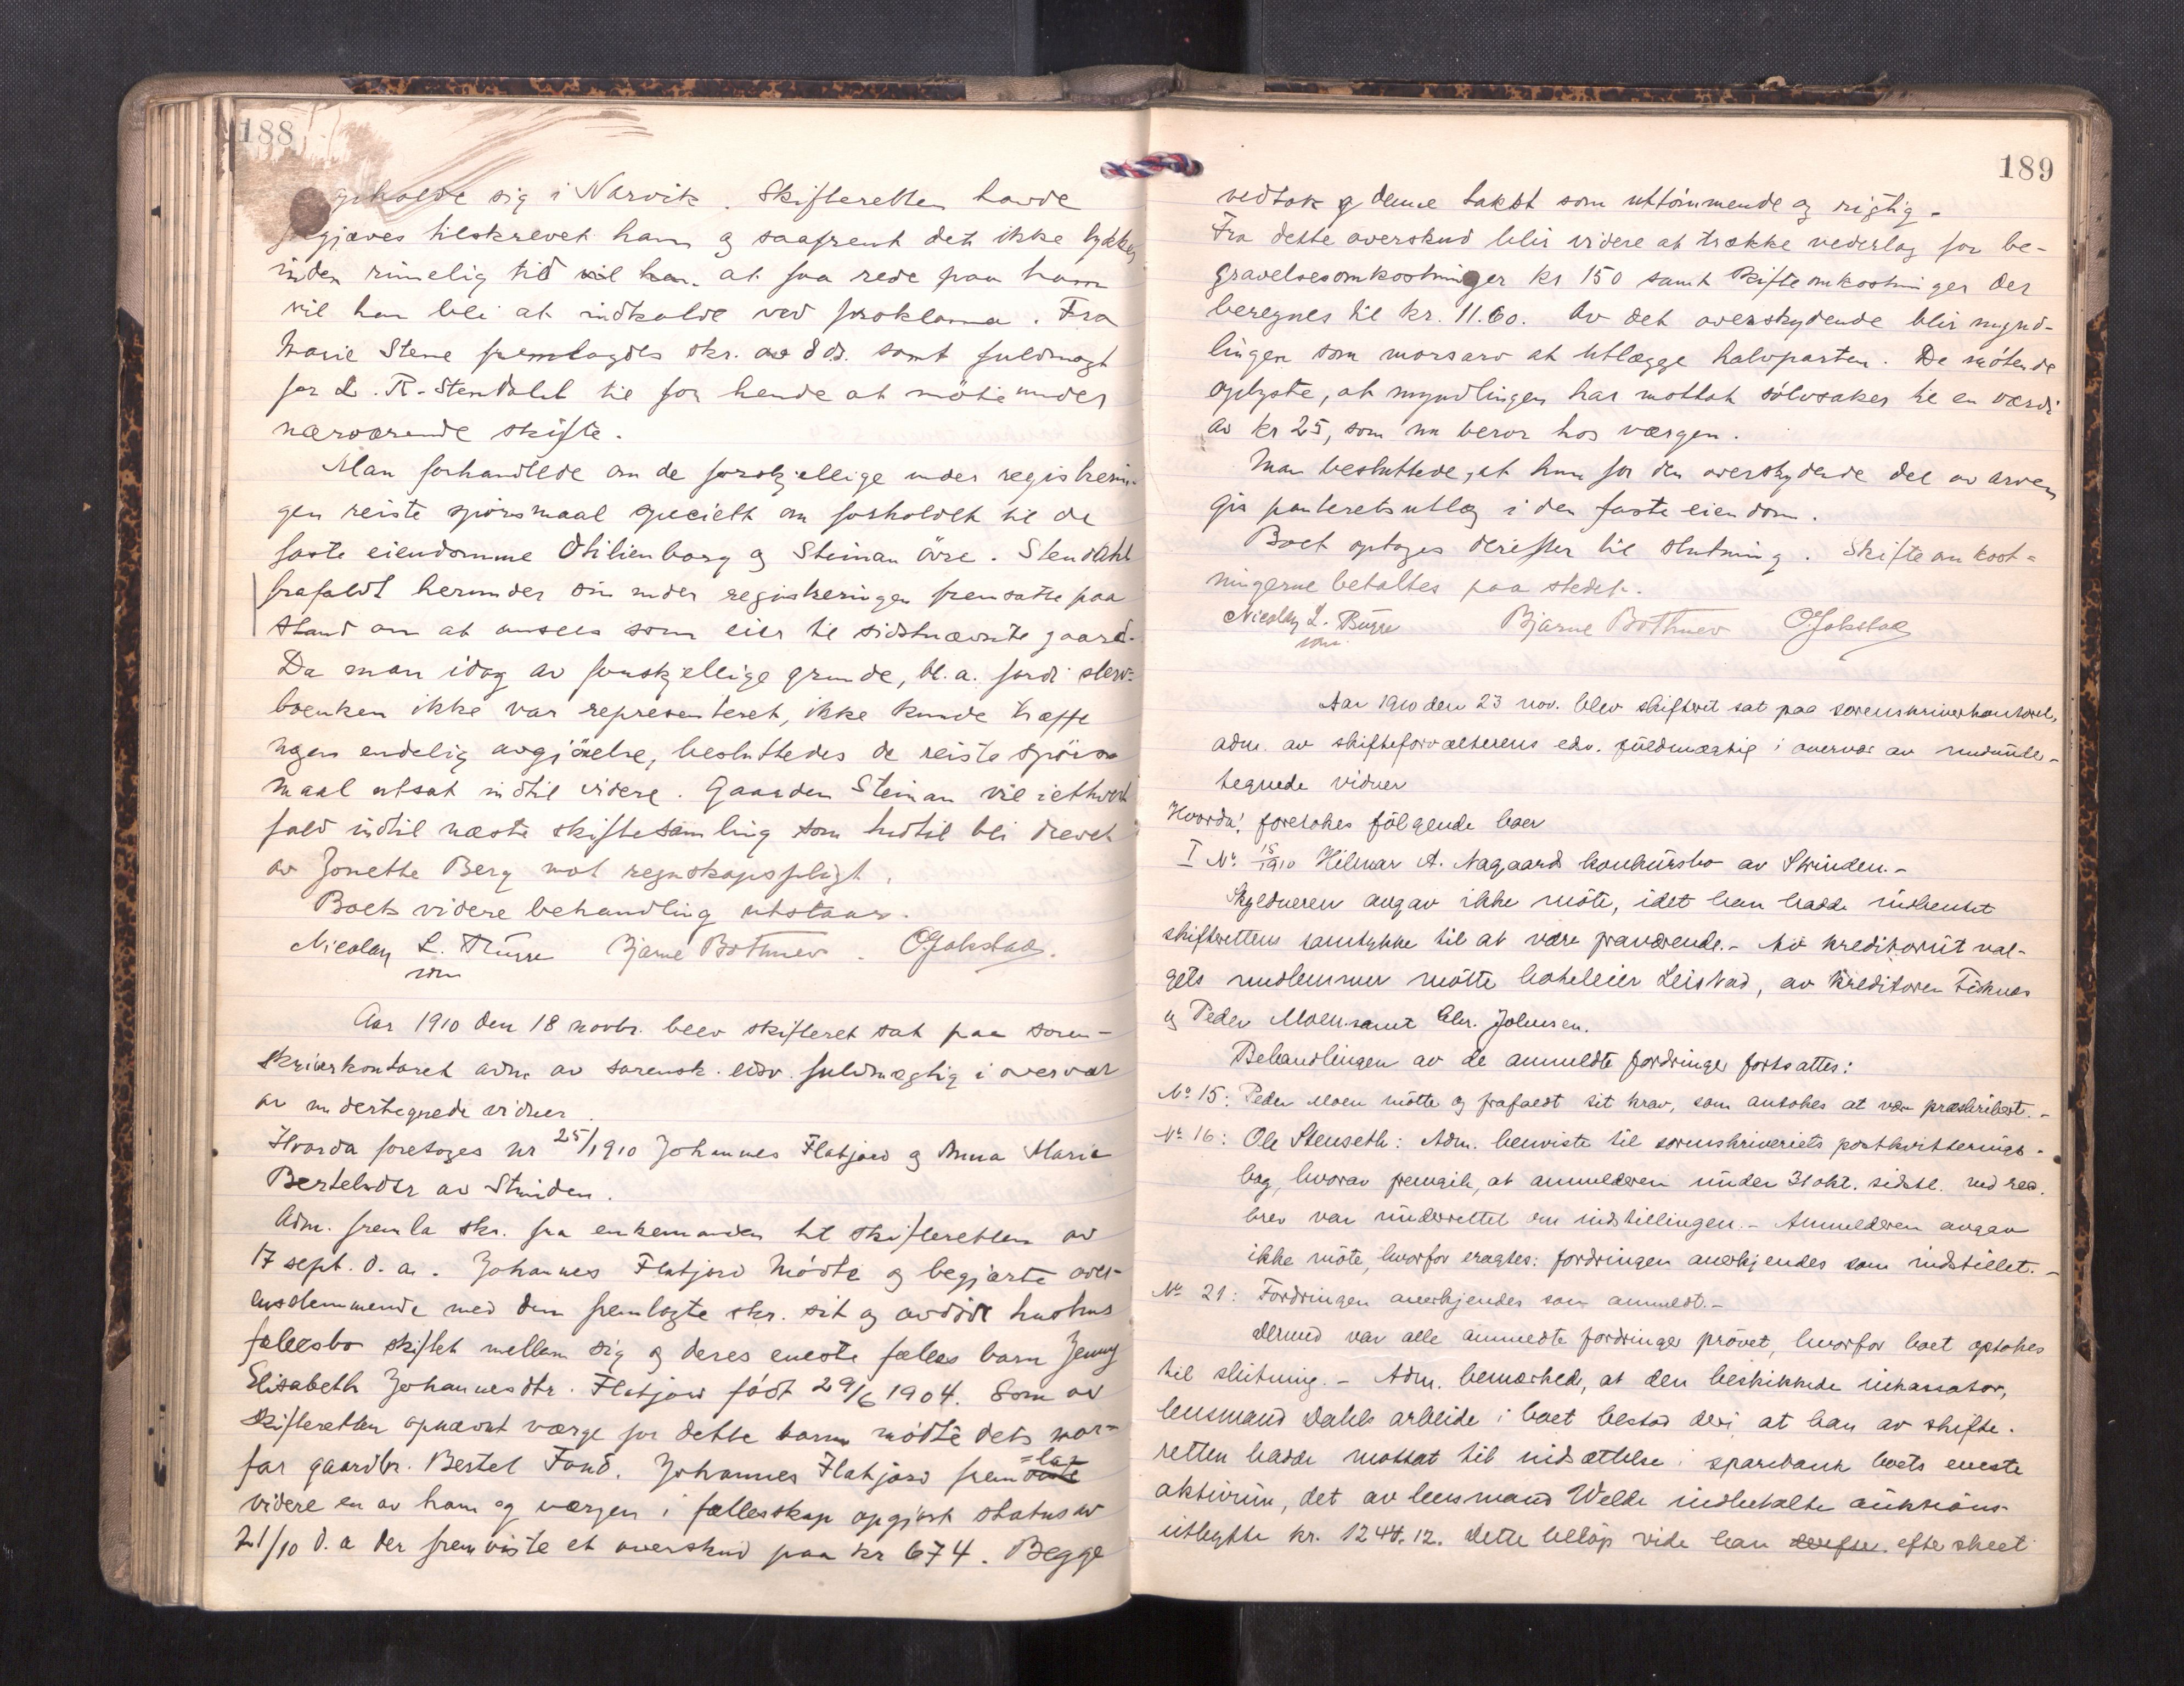 188
opholde sig i Narvik. Skifteretten havde
forgjæves tilskrevet ham og saafremt det ikke lykkes
inden rimelig tid vil han at faa rede paa ham
vil han bli at indkalde ved proklama. Fra
Marie Stene fremlagdes skr. av d.d. samt fuldmagt
for L. R. Stendahl til for hende at möte under
nærværende skifte.
Man forhandlede om de forskjellige under registrerin-
gen reiste spörsmaal specielt om forholdet til de
faste eiendomme Otilienborg og Steinan övre. Stendahl
frafaldt herunder sin under registreringen fremsatte paa
stand om at ansees som eier til sidstnævnte gaard.
Da man idag av forskjellige grunde, bl.a. fordi sterv-
boenken ikke var representeret, ikke kunde træffe
nogen endelig avgjörelse, besluttedes de reiste spörs-
maal utsat indtil videre. Gaarden Steinan vil iethvert
fald indtil næste skiftesamling som hidtil bli drevet
av Jonette Berg mot regnskapspligt.
Boets videre behandling utstaar.
Nicolay L. Bürre Bjarne Bothner. O Jakstad.
som
Aar 1910 den 18 novbr. blev skifteret sat paa soren-
skriverkontoret adm av sorensk. edsv. fuldmægtig i overvær
av undertegnede vidner.
Hvorda foretoges nr 25/1910 Johannes Flatjord og Anna Marie
Bertelsdtr av Strinden.
Adm. fremla skr. fra enkemanden til skifteretten av
17 sept. d. a. Johannes Flatjord mödte og begjærte over-
ensstemmende med den fremlagte skr. sit og avdöde hustrus
fællesbo skiftet mellem sig og deres eneste fælles barn Jenny
Elisabeth Johannesdtr. Flatjord födt 29/6 1904. Som av
skifteretten opnævnt værge for dette barn mödte dets mor-
far gaardbr. Bertel Fond. Johannes Flatjord fremviste =la
videre en av ham og værgen i fællesskap opgjort status av
21/10 d. a der fremviste et overskud paa kr 674. Begge
189
vedtok denne takst som uttömmende og rigtig.
Fra dette overskud blir videre at trække vederlag for be-
gravelsesomkostninger kr 150 samt skifteomkostninger der
beregnes til kr. 11.60. Av det overskydende blir mynd-
lingen som morsarv at utlægge halvparten. De mötende
oplyste, at myndlingen har mottat sölvsaker til en værdi
av kr 25, som nu beror hos værgen.
Man besluttede, at hun for den overskydende del av arven
gis panteretsutlæg i den faste eiendom.
Boet optages derefter til slutning. Skifteomkost-
ningerne betaltes paa stedet.
Nicolay L. Bürre Bjarne Bothner O Jakstad
som
Aar 1910 den 23 nov. blev skifteret sat paa sorenskriverkontoret,
adm. av skifteforvalterens edsv. fuldmægtig i overvær av medunder-
tegnede vidner
Hvorda: foretokes fölgende boer
I Nr. 15/1910 Hilmar A. Nagaard konkursbo av Strinden.-
Skyldneren avgav ikke möte, idet han hadde indhentet
skifterettens samtykke til at være fraværende.- Av kreditorutval-
gets medlemmer mötte hoteleier Leistad, av kreditoren Fisknes
og Peder Moen samt Chr. Johnsen.
Behandlingen av de anmeldte fordringer fortsattes:
No 15: Peder Moen mötte og frafaldt sit krav, som antokes at være præskribert.-
Nr 16: Ole Stenseth: Adm. henviste til sorenskriveriets postkvitterings-
bog, hvorav fremgik, at anmelderen under 31 okt. sidstl. ved rec.
brev var underrettet om indstillingen.- Anmelderen avgav
ikke möte, hvorfor eragtes: fordringen anerkjendes som indstillet.-
No 21: Fordringen anerkjendes som anmeldt.-
Dermed var alle anmeldte fordringer prövet, hvorfor boet optokes
til slutning.- Adm. bemærked, at den beskikkede inkassator,
lensmand Dahls arbeide i boet bestod deri at han av skifte-
retten hadde mottat til indsættelse i sparebank boets eneste
aktivum, det av lensmand Welde indbetalte auktions-
utbytte kr. 1244.12. Dette belöp vide han derefter. efter skeet